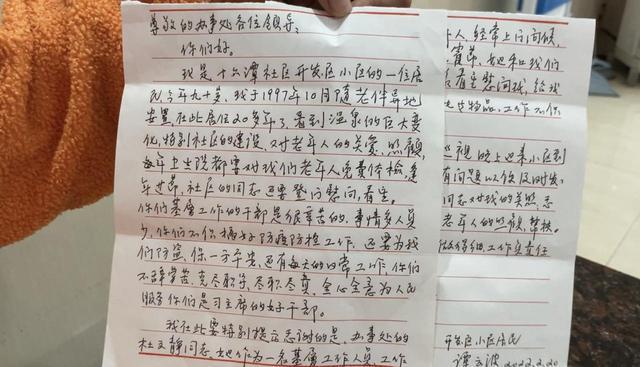 尊敬的办事处各位领导：
你们好。
我是十六潭社区开发区小区的一位居
民，今年九十岁，我于1997年10月随老伴异地
安置，在此居住20多年了，看到温泉的巨大变
化，特别社区的建设，对老年人的关爱、照顾，
每年卫生院都要对我们老年人免费体检，逢
年过节，社区的同志还要登门慰问，看望。
你们基层工作的干部是很辛苦的，事情多人员
少，你们不仅搞好防疫防检工作，还要为我
们防盗，保一方平安，还有每天的日常工作，你们
不辞辛苦，克尽职守，尽职尽责，全心全意为人民
服务你们是习主席的好干部。
我在此要特别提示感谢的是，办事处的
杜文静同志，她作为一名基层工作人员，工作
年人，经常上门问候，
看望慰问我，给我
物品，工作不仅
巡视，晚上还来小区到
有问题以便及时发
同志对我的关照，感
老年人的照顾，帮扶。
做得细，工作负责任
开发区小区居民
谭云波 2022.2.20